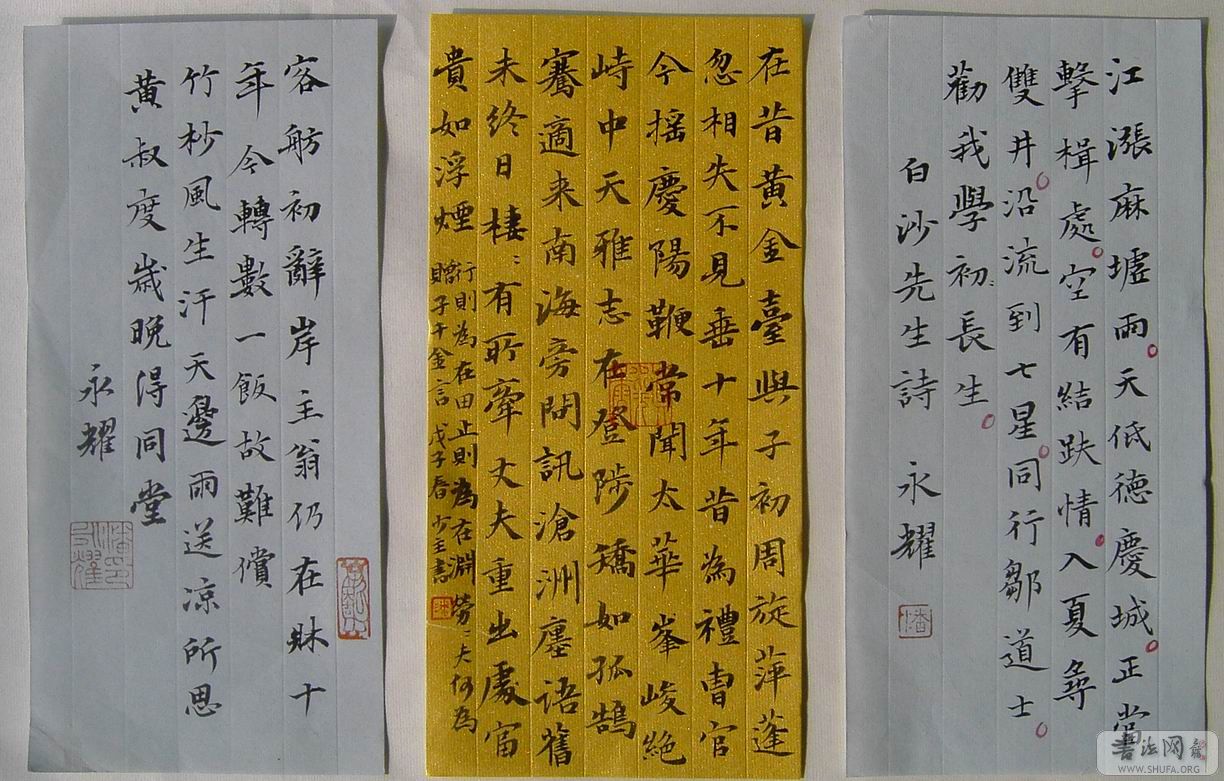 江漲麻墟雨天低德慶城正當
擊楫處空有結趺情入夏尋
雙井沿流到七星同行鄒道士
勸我學初長生
白沙先生詩 永耀
在昔黃金臺與子初周旋萍蓬
忽相失不見垂十年昔為禮曹官
今搖慶陽鞭常聞太華峯峻絕
峙中天雅志在登陟矯如孤鵠
騫適来南海旁問訊滄洲廛語舊
未終日棲:有所牽丈夫重出處富
貴如浮煙
行則為在田止則為在淵勞:夫何為
贈子千金言 戊子春 書
客舫初辭岸主翁仍在牀十
年今轉數一飯故難償
竹杪風生汗天邊雨送凉所思
黃叔度歲晚得同堂
永耀
書法网
WWW.SHUFA.ORG